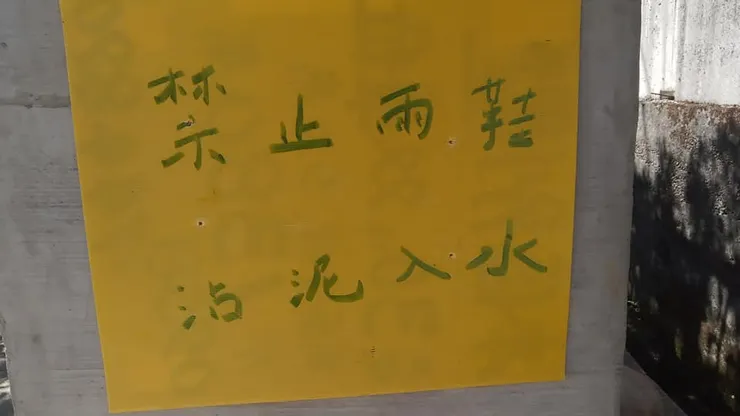 禁止雨鞋
沾泥入水